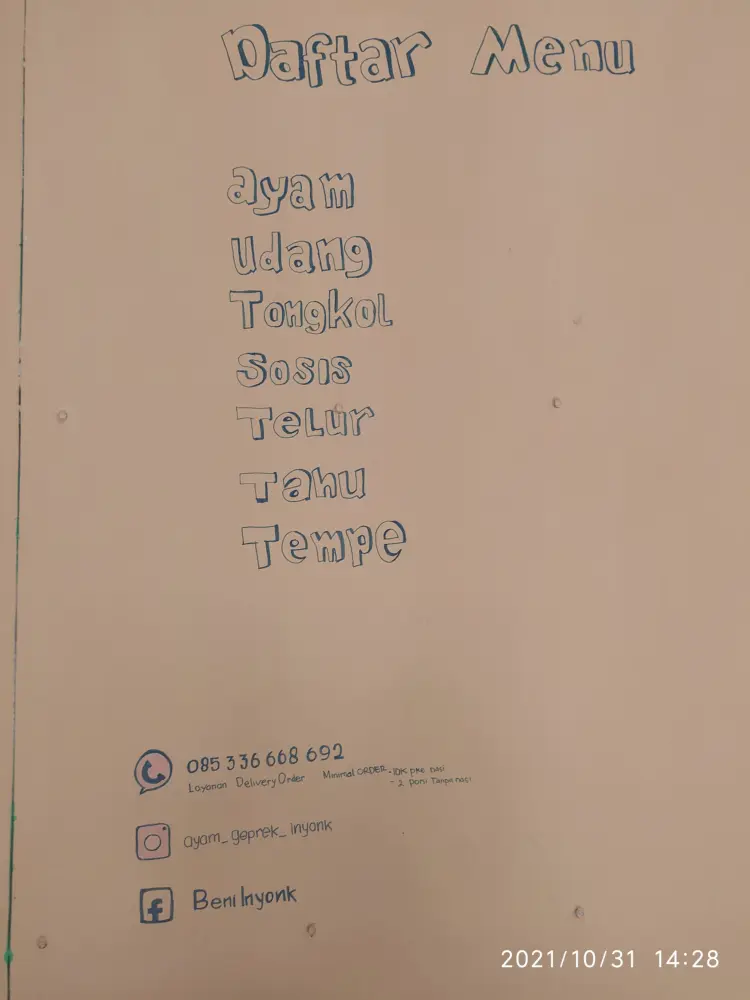 Daftar Menu
ayam
Udang
Tongkol
Sosis
Telur
Tahu
Tempe
085 336 668 692
Layanan Delivery Order Minimal ORDER - 10K pke nasi
- 2 porsi Tanpa nasi
ayam_geprek_inyonk
Beni Inyonk
2021/10/31 14:28